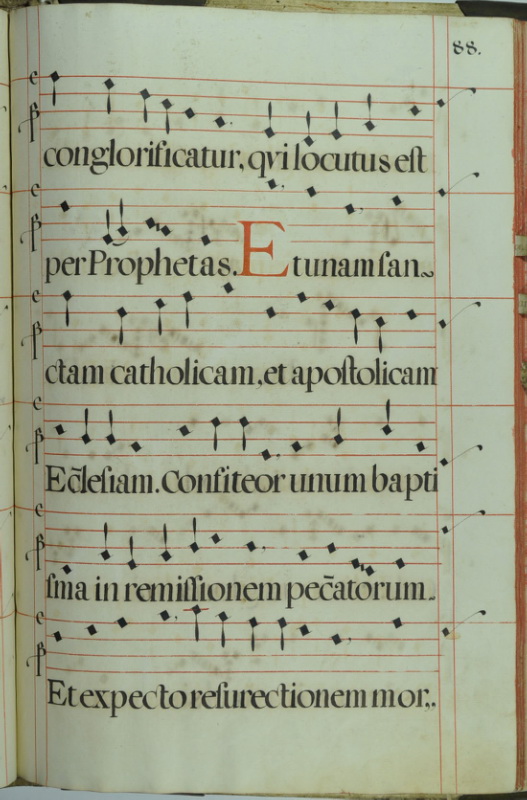 88.
conglorificatur, qvi locutus eſt
per Prophetas. Et unam ſan~
ctam catholicam, et apoſtolicam
Ec̃leſiam. Confiteor unum bapti
ſma in remiſſionem pec̃atorum.
Et expecto reſurectionem mor,.